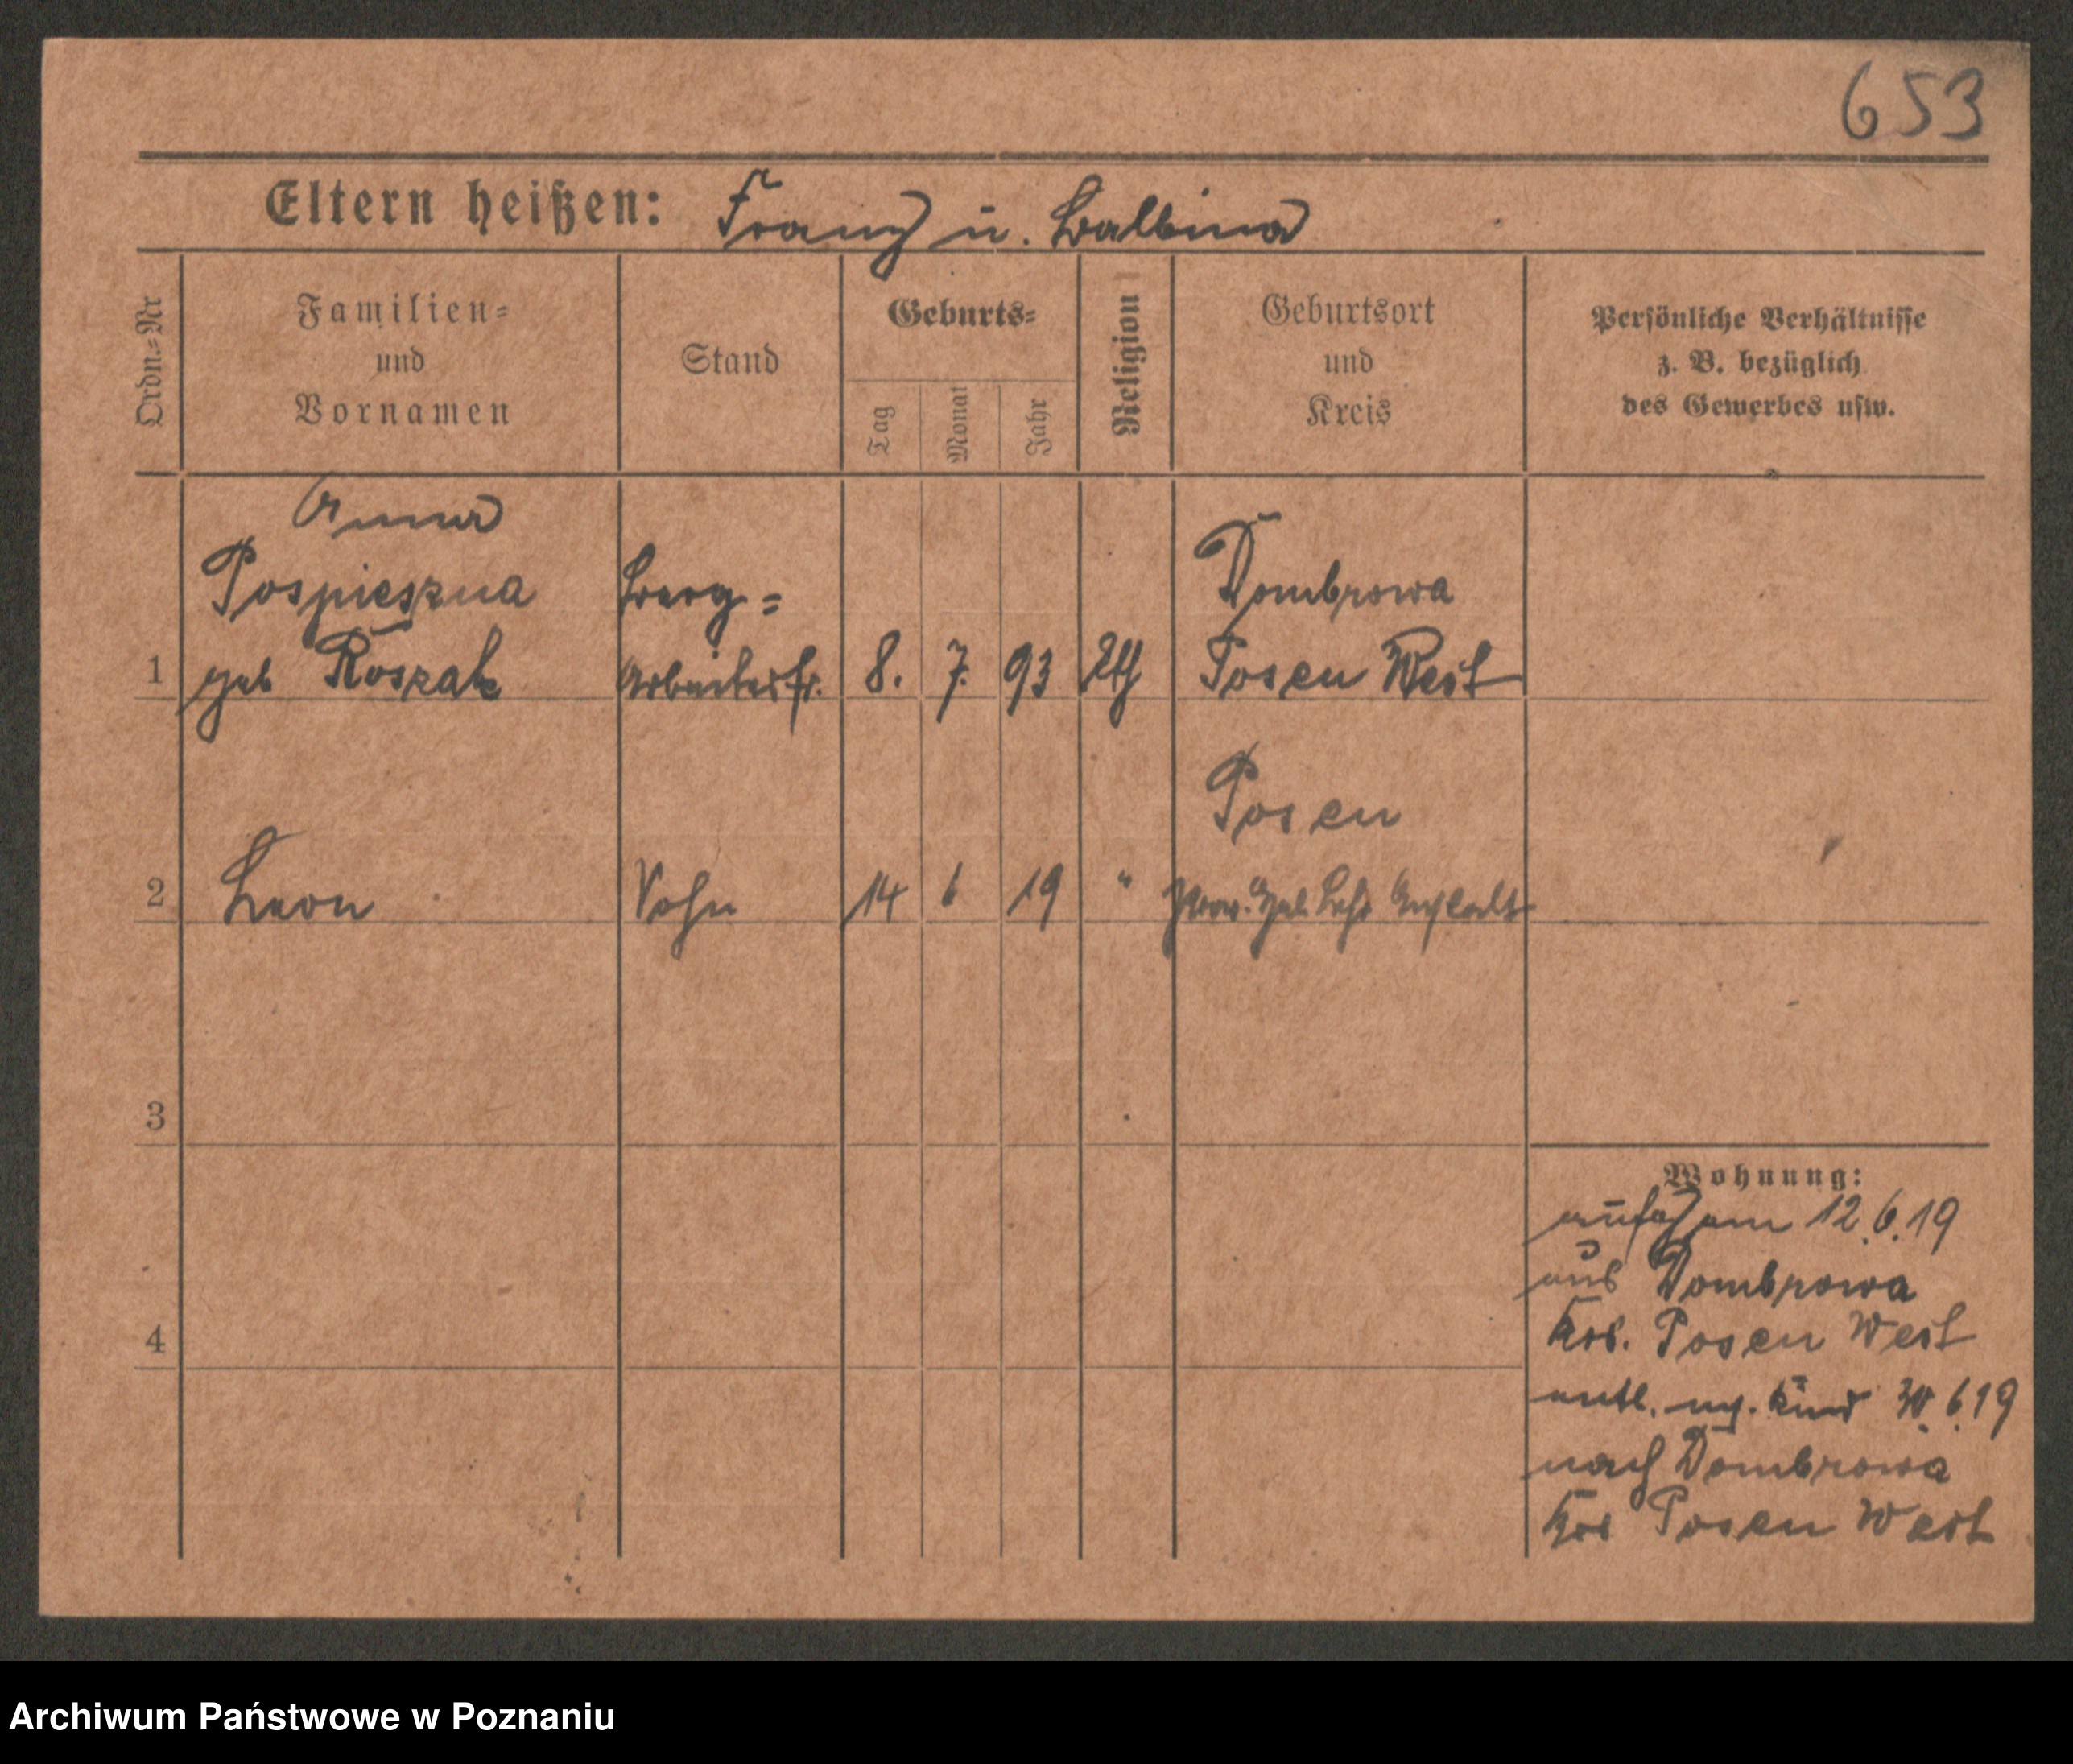 653
Eltern heißen: Franz u. Balbina
Ordn.-Nr
Familien-
und
Vornamen
Stand
Geburts-
Tag
Monat
Jahr
Religion
Geburtsort
und
Kreis
Persönliche Verhältnisse
z. B. bezüglich
des Gewerbes usw.
Anna
Pospieszna
geb Roszak
Berg=
Arbeiterfr.
1
8. 7. 93
kth
Dombrowa
Posen West
2
Leon
Sohn
14 6 19 "
Posen
Prov. Heb. Lehr Anstalt
3
4
Wohnung:
aufg am 12.6.19
aus Dombrowa
Krs. Posen West
entl. m. Kind 30.6.19
nach Dombrowa
Krs Posen West
Archiwum Państwowe w Poznaniu